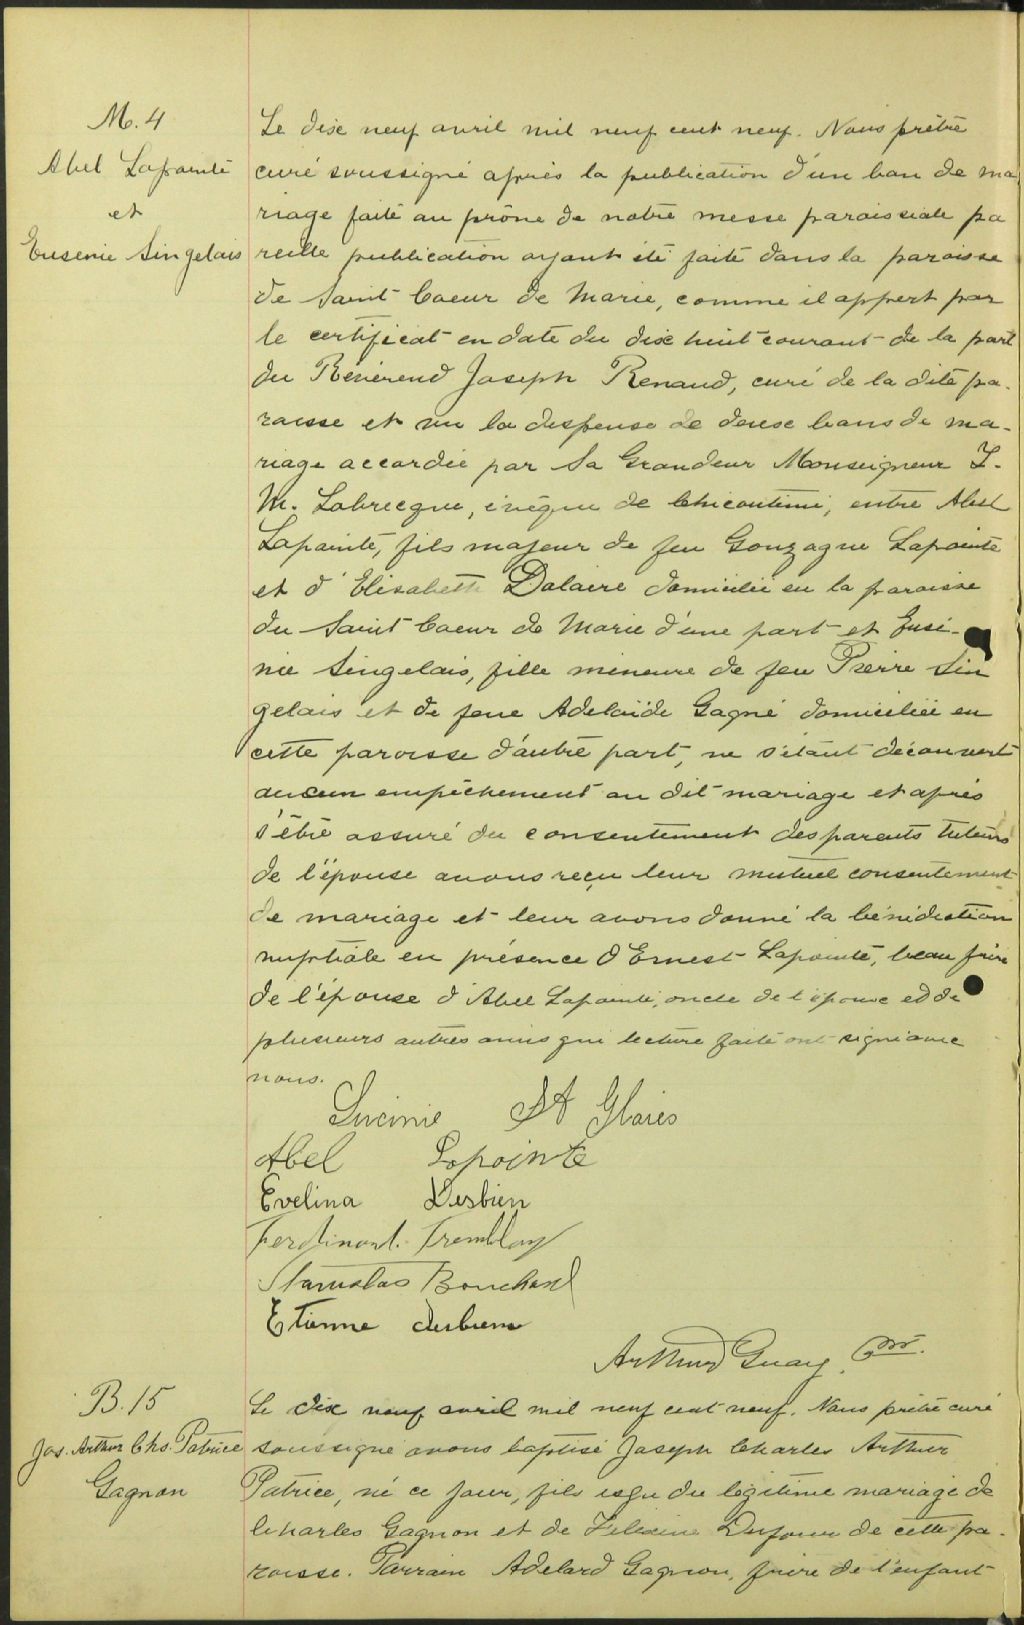 M. 4
Abel Lapointe
et
Eusenie Singelais
Le dix neuf avril mil neuf cent neuf. Nous prêtre
curé soussigné après la publication d'un ban de ma
riage faite au prône de notre messe paroissiale pa
reille publication ayant été faite dans la paroisse
de Saint Coeur de Marie, comme il appert par
le certificat en date du dix huit courant de la part
du Révérend Joseph Renaud, curé de la dite pa-
roisse et vu la dispense de deux bans de ma-
riage accordée par Sa Grandeur Monseigneur
M. Labrecque, évêque de Chicoutimi, entre Abel
Lapointe, fils majeur de feu Gonzague Lapointe
et d'Elisabeth Dalaire domicilié en la paroisse
du Saint Coeur de Marie d'une part et Eusé-
nie Singelais, fille mineure de feu Pierre Sin
gelais et de feue Adelaïde Gagné domiciliée en
cette paroisse d'autre part, ne s'étant découvert
aucun empêchement au dit mariage et après
s'être assuré du consentement des parents tuteurs
de l'épouse avons reçu leur mutuel consentement
de mariage et leur avons donné la bénédiction
nuptiale en présence d'Ernest Lapointe, beau frère
de l'épouse d'Abel Lapointe, oncle de l'épouse et de
plusieurs autres amis qui lecture faite ont signé avec
nous.
St Glais
Abel Lapointe
Evelina Desbien
Ferdinand Tremblay
Stanislas Bouchard
Etienne desbiens
Arthur Guay, Ptre.
B. 15
Jos. Arthur Chs. Patrice
Gagnon
Le dix neuf avril mil neuf cent neuf. Nous prêtre curé
soussigné avons baptisé Joseph Charles Arthur
Patrice, né ce jour, fils issu du légitime mariage de
Charles Gagnon et de Dufour de cette pa-
roisse. Parrain Adelard Gagnon, frère de l'enfant